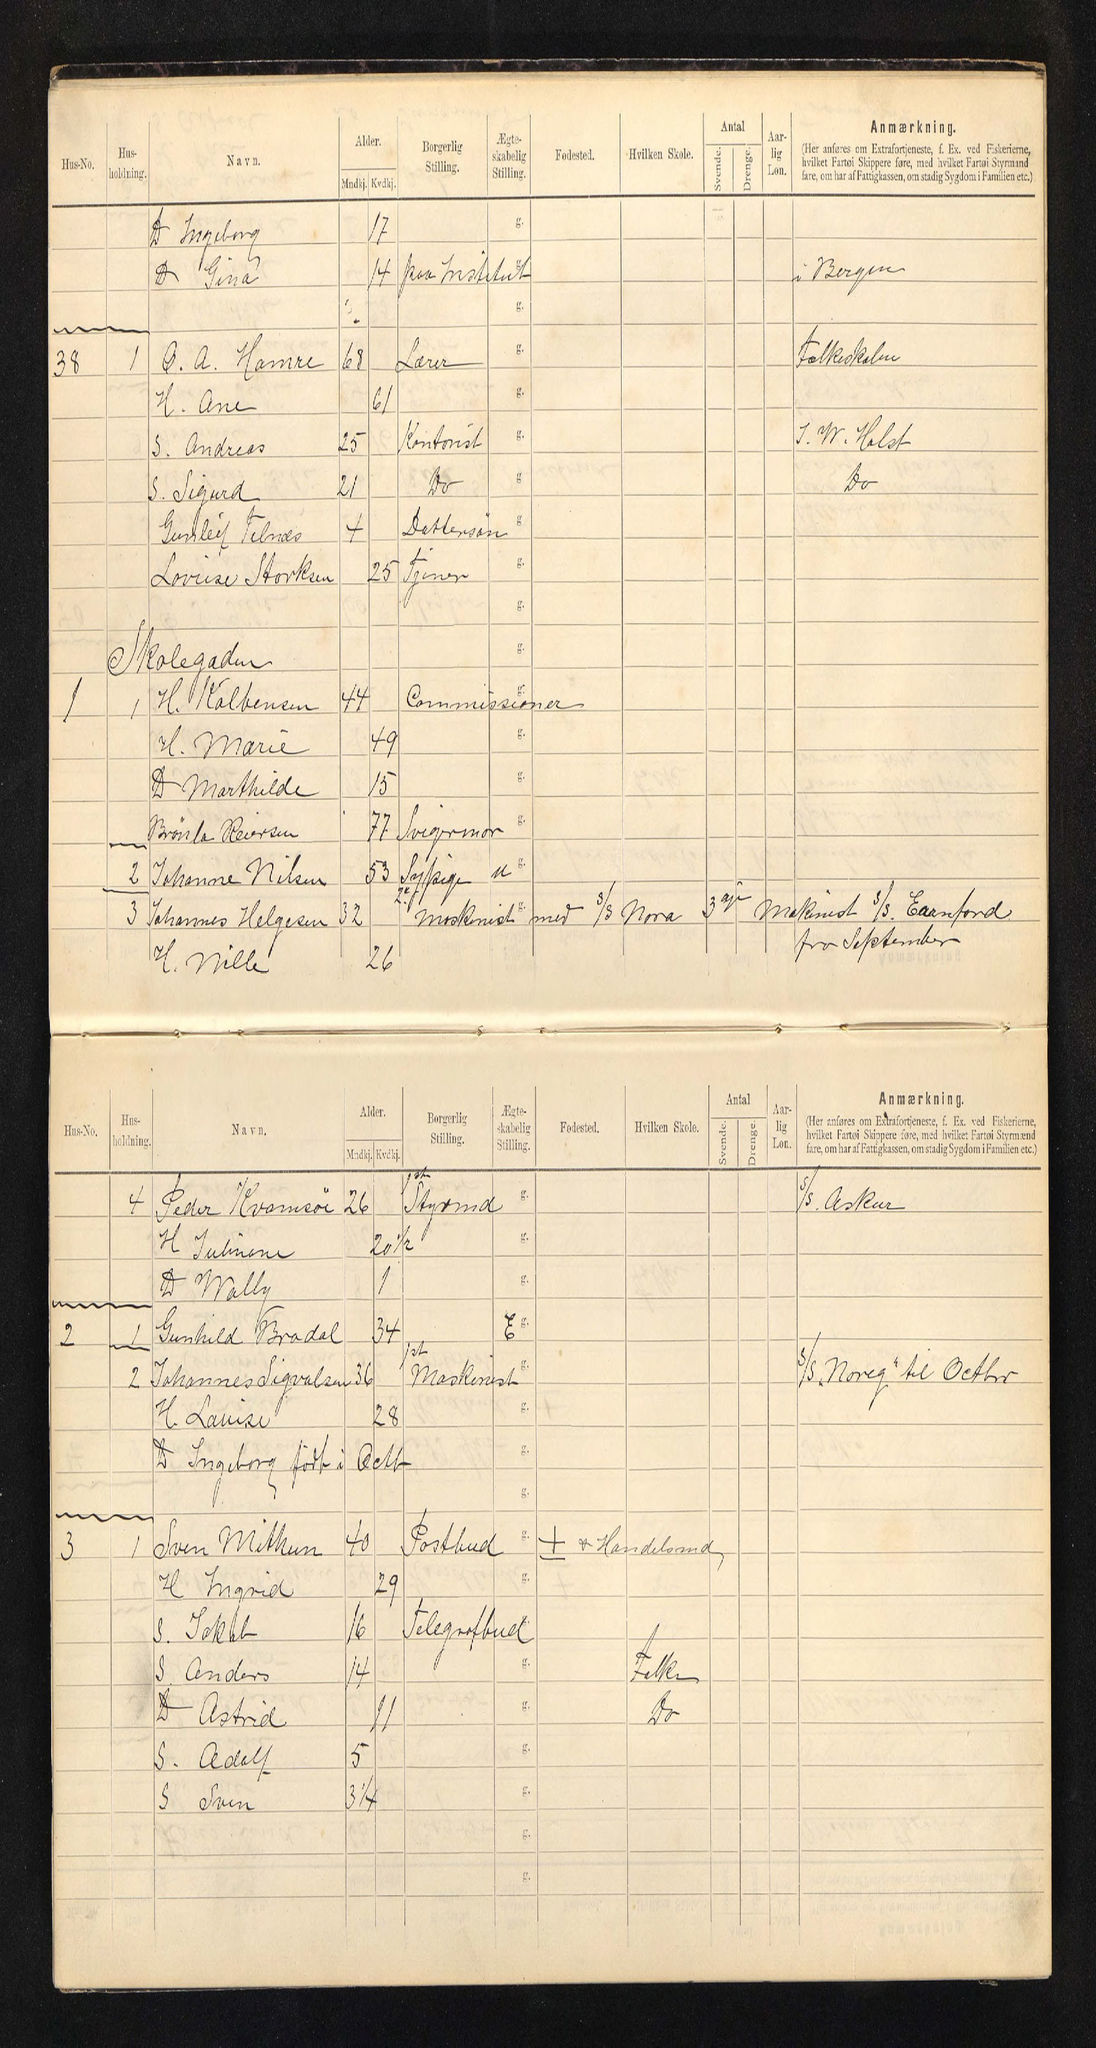 Hus-No. Hus-holdning. Navn. Alder. Mndkj. Kvdkj. Borgerlig Stilling. Ægte-skabelig Stilling. Fødested. Hvilken Skole. Antal Svende. Drenge. Aar-lig Løn. Anmærkning.
(Her anføres om Extrafortjeneste, f. Ex. ved Fiskerierne, hvilket Fartøi Skippere føre, med hvilket Fartøi Styrmænd fare, om har af Fattigkassen, om stadig Sygdom i Familien etc.)
D Ingeborg 17 g.
D Gina 14 paa Institut g. i Bergen
g.
38 1 O. A. Hamre 68 Lærer g. Folkeskolen
H. Ane 61 g.
S. Andreas 25 Kontorist g. I. W. Holst
S. Sigurd 21 Do g. Do
Gunleif Felnæs 4 Dattersøn g.
Lovise Storksen 25 Tjener g.
g.
Skolegaden g.
1 1 H. Kolbensen 44 Commissioner g.
H. Marie 49 g.
D Marthilde 15 g.
Brönla Reiersen 77 Svigermor g.
2 Johanne Nilsen 53 Sypige u g.
3 Johannes Helgesen 32 2er Maskinist g. med S/S Nora 3die Maskinist S/S. Earnford
fra September
H. Nille 26
Hus-No. Hus-holdning. Navn. Alder. Mndkj. Kvdkj. Borgerlig Stilling. Ægte-skabelig Stilling. Fødested. Hvilken Skole. Antal Svende. Drenge. Aar-lig Løn. Anmærkning.
(Her anføres om Extrafortjeneste, f. Ex. ved Fiskerierne, hvilket Fartøi Skippere føre, med hvilket Fartøi Styrmænd fare, om har af Fattigkassen, om stadig Sygdom i Familien etc.)
4 Peder Kvamsöe 26 1st Styrmd g. S/S. Askur
H Juliane 20 1/2 g.
D Wally 1 g.
2 1 Gunhild Bradal 34 E g.
2 Johannes Sigvalsen 36 1st Maskinist g. S/S "Noreg" til Octbr
H. Louise 28 g.
D Ingeborg født i Octb g.
g.
3 1 Sven Mitkun 40 Postbud g. + Handelsmd
H Ingrid 29 g.
S. Jakob 16 Telegrafbud g.
S. Anders 14 g. Folke
D Astrid 11 g. Do
S. Adolf 5 g.
S Sven 3 1/4 g.
g.
g.